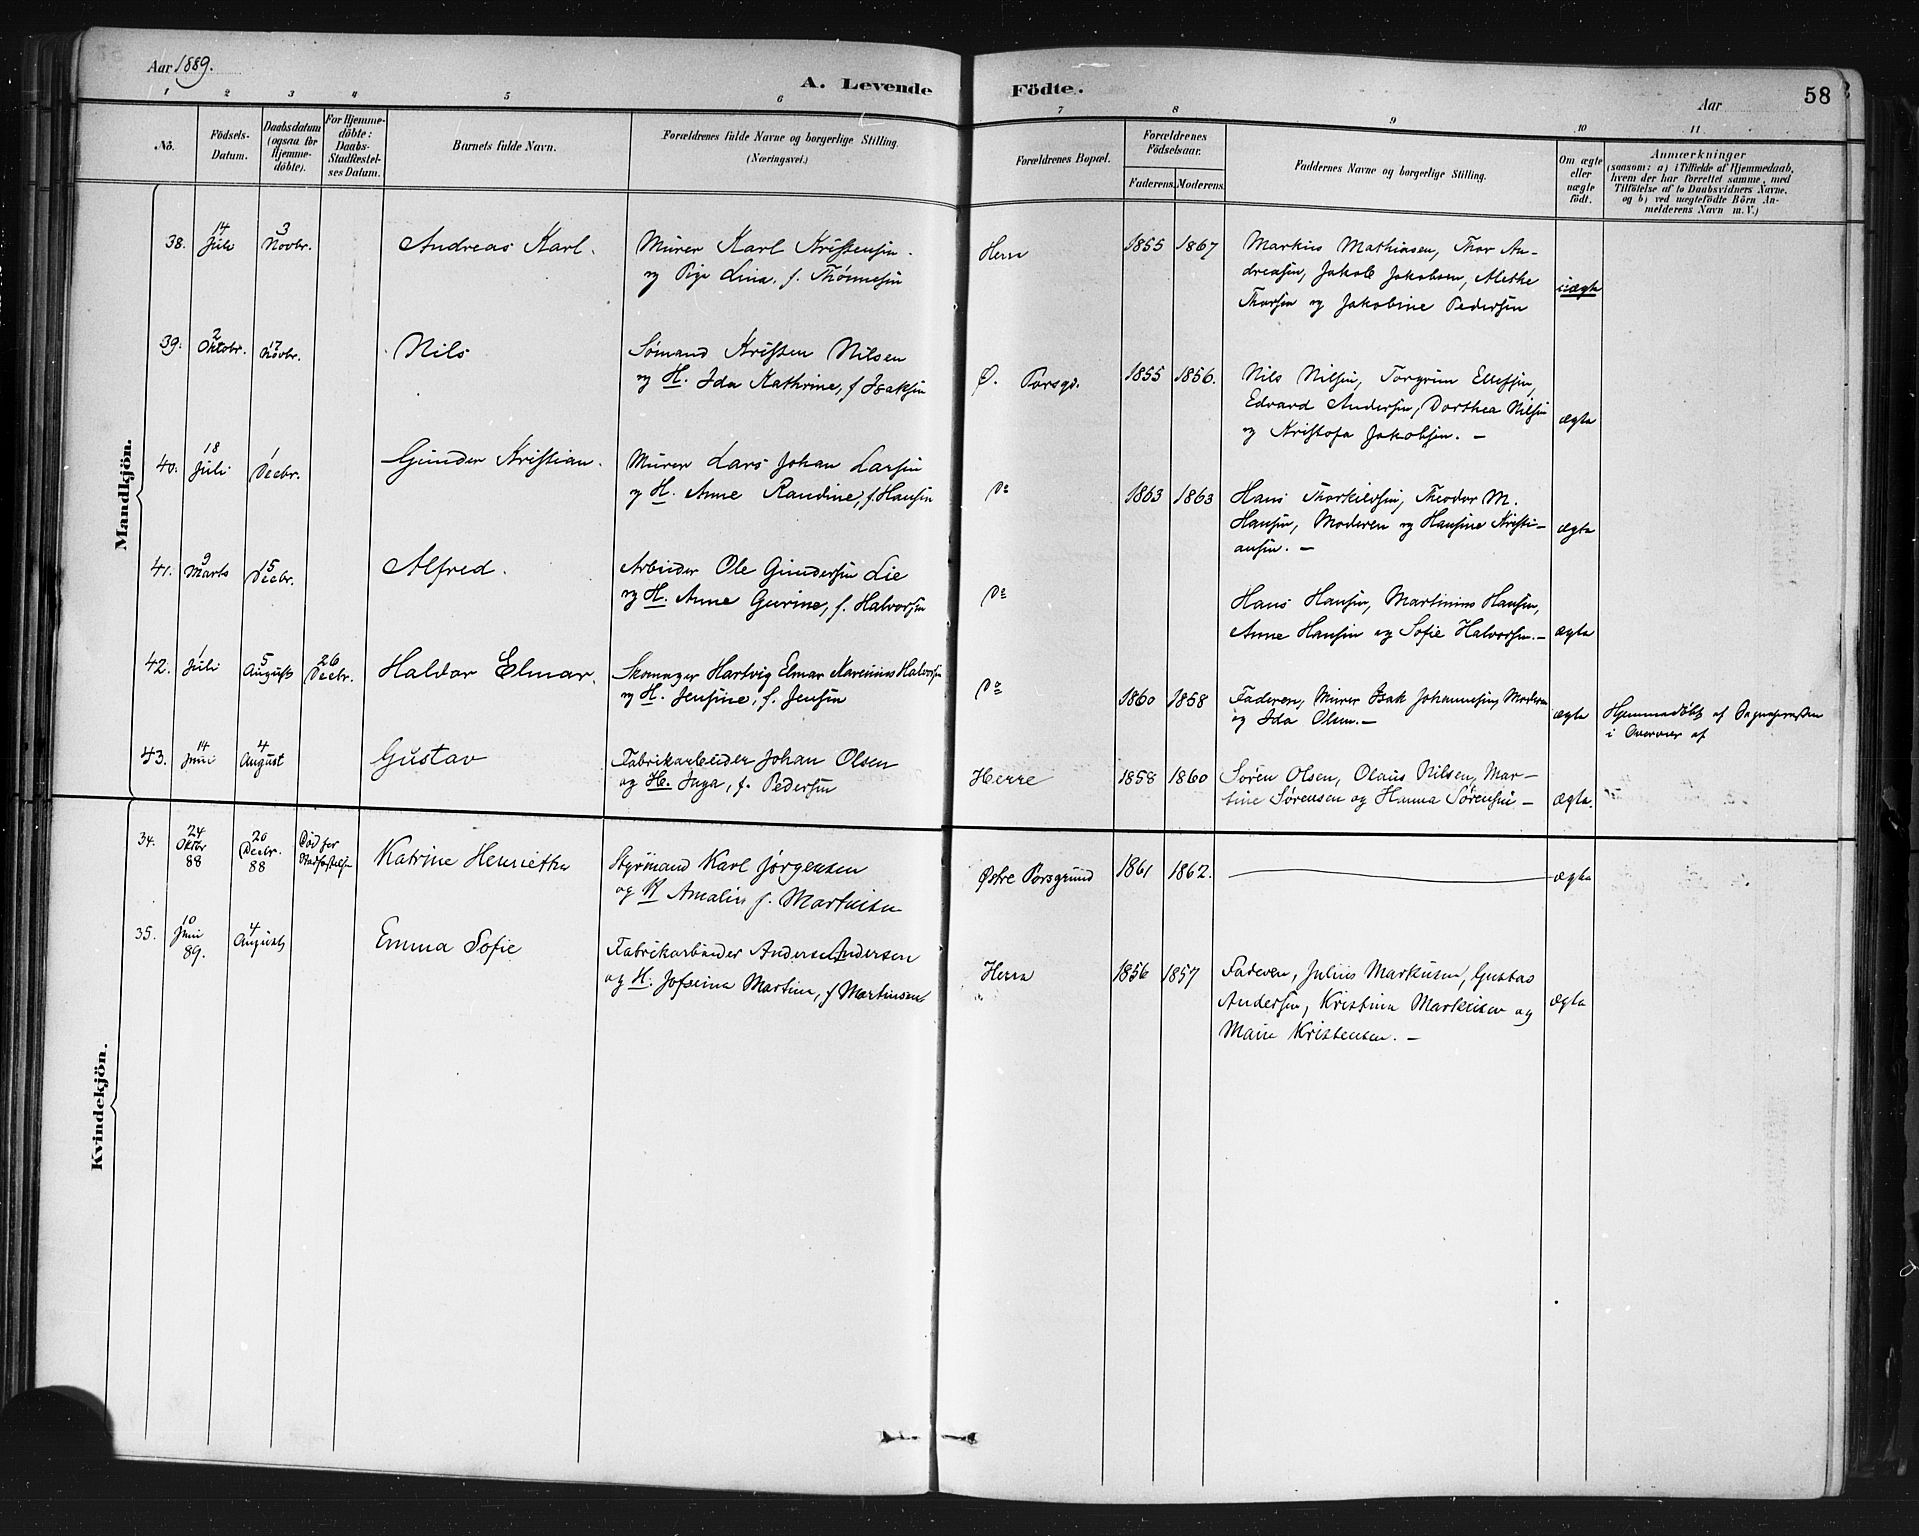 Aar 1889.
A. Levende Födte.
Aar
58
1 2 3 4 5 6 7 8 9 10 11
Nö.
Födsels-Datum.
Daabsdatum (ogsaa for Hjemme-döbte).
For Hjemme-döbte: Daabs-Stadfæstel-ses Datum.
Barnets fulde Navn.
Forældrenes fulde Navne og borgerlige Stilling.
(Næringsvei.)
Forældrenes Bopæl.
Forældrenes Födselsaar.
Faderens. Moderens.
Faddernes Navne og borgerlige Stilling.
Om ægte eller uægte födt.
Anmærkninger
(saasom: a) i Tilfælde af Hjemmedaab,
hvem der har forrettet samme, med
Tilföielse af to Daabsvidners Navne.
og b) ved uægtefödte Börn An-
melderens Navn m. V.)
Mandkjön.
38. 14 Juli 3 Novbr. Andreas Karl. Murer Karl Kristensen. Herre 1855 1867 Markus Mathiasen, Thor An-
og Pige Lina, f. Thønnesen dreasen, Jakob Jakobsen, Alethe uægte
Thorsen og Jakobine Pedersen
39. 2 Oktobr. 17 Novbr. Nils Sømand Kristen Nilsen
og H. Ida Kathrine, f. Isaksen Ø. Porsgr. 1855 1856. Nils Nilsen, Torgrim Ellefsen,
Edvard Andersen, Dorthea Nilsen ægte
og Kristofa Jakobsen. —
40. 18 Juli 1 Decbr. Gunder Kristian. Murer Lars Johan Larsen
og H. Anne Randine, f. Hansen Do 1863 1863 Hans Thorkildsen, Theodor M.
Hansen, Moderen og Hansine Kristi- ægte
ansen. —
41. 9 Marts 15 Decbr. Alfred. Arbeider Ole Gundersen Lie
og H. Anne Gurine, f. Halvorsen Do Hans Hansen, Martinius Hansen,
Anne Hansen og Sofie Halvorsen. — ægte
42. 1 Juli 5 August 26 Decbr. Haldor Elmar. Skomager Hartvig Elmar Karenius Halvorsen
og H. Jensine, f. Jensen Do 1860 1858 Faderen, Murer Isak Johannesen, Moderen
og Ida Olsen. — ægte Hjemmedøbt af
i Overvær af
43. 14 Juni 4 August Gustav Fabrikarbeider Johan Olsen
og H. Inga, f. Pedersen Herre 1858 1860 Søren Olsen, Olaus Nilsen, Mar-
tine Sørensen og Hanna Sørensen — ægte.
Kvindekjön.
34. 24 Oktbr 88 20 Decbr. 88 Død før Stadfæstelsen Katrine Henriette Styrmand Karl Jørgensen
og H Amalie f. Martinsen Østre Porsgrund 1861 1862. — ægte
35. 10 Juni 89. 4 August Emma Sofie Fabrikarbeider Anders Andersen
og H. Josefine Martine, f Martinsen Herre 1856 1857 Faderen, Julius Markusen, Gustav
Andersen, Kristine Markusen og ægte
Marie Kristensen. —